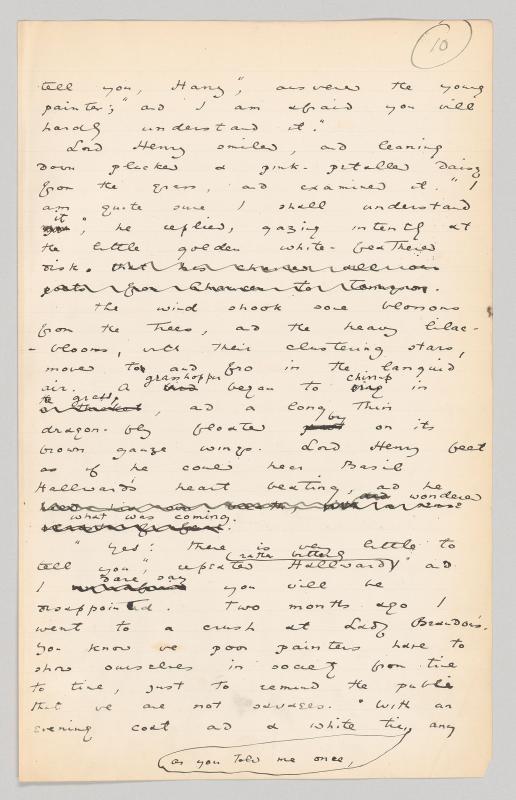 10
tell you, Harry", answered the young
painter; "and I am afraid you will
hardly understand it."
Lord Henry smiled, and leaning
down plucked a pink-petalled daisy
from the grass, and examined it. "I
am quite sure I shall understand
it
", he replied, gazing intently at
the little golden white-feathered
disk. that has charmed all our
poets from Chaucer to Tennyson.
The wind shook some blossoms
from the trees, and the heavy lilac-
-blooms, with their clustering stars,
moved to and fro in the languid
grasshopper chirrup
air. A bird began to sing in
the grass,
or thicket, and a long thin
by
dragon-fly floated past on its
brown gauze wings. Lord Henry felt
as if he could hear Basil
Hallward's heart beating, and he
and wondered
what was coming.
"Yes: there is very little to
rather bitterly
tell you", repeated Hallward, "and
dare say
I you will be
disappointed. Two months ago I
went to a crush at Lady Brandon's.
You know we poor painters have to
show ourselves in society from time
to time, just to remind the public
that we are not savages. With an
evening coat and a white tie, any
as you told me once,